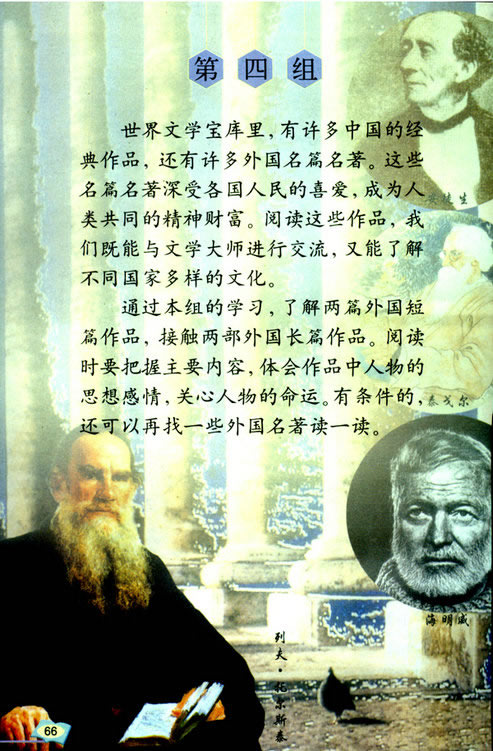 第四组
世界文学宝库里，有许多中国的经
典作品，还有许多外国名篇名著。这些
名篇名著深受各国人民的喜爱，成为人
类共同的精神财富。阅读这些作品，我
们既能与文学大师进行交流，又能了解
不同国家多样的文化。
通过本组的学习，了解两篇外国短
篇作品，接触两部外国长篇作品。阅读
时要把握主要内容，体会作品中人物的
思想感情，关心人物的命运。有条件的，
还可以再找一些外国名著读一读。
安徒生
泰戈尔
海明威
列夫·托尔斯泰
66